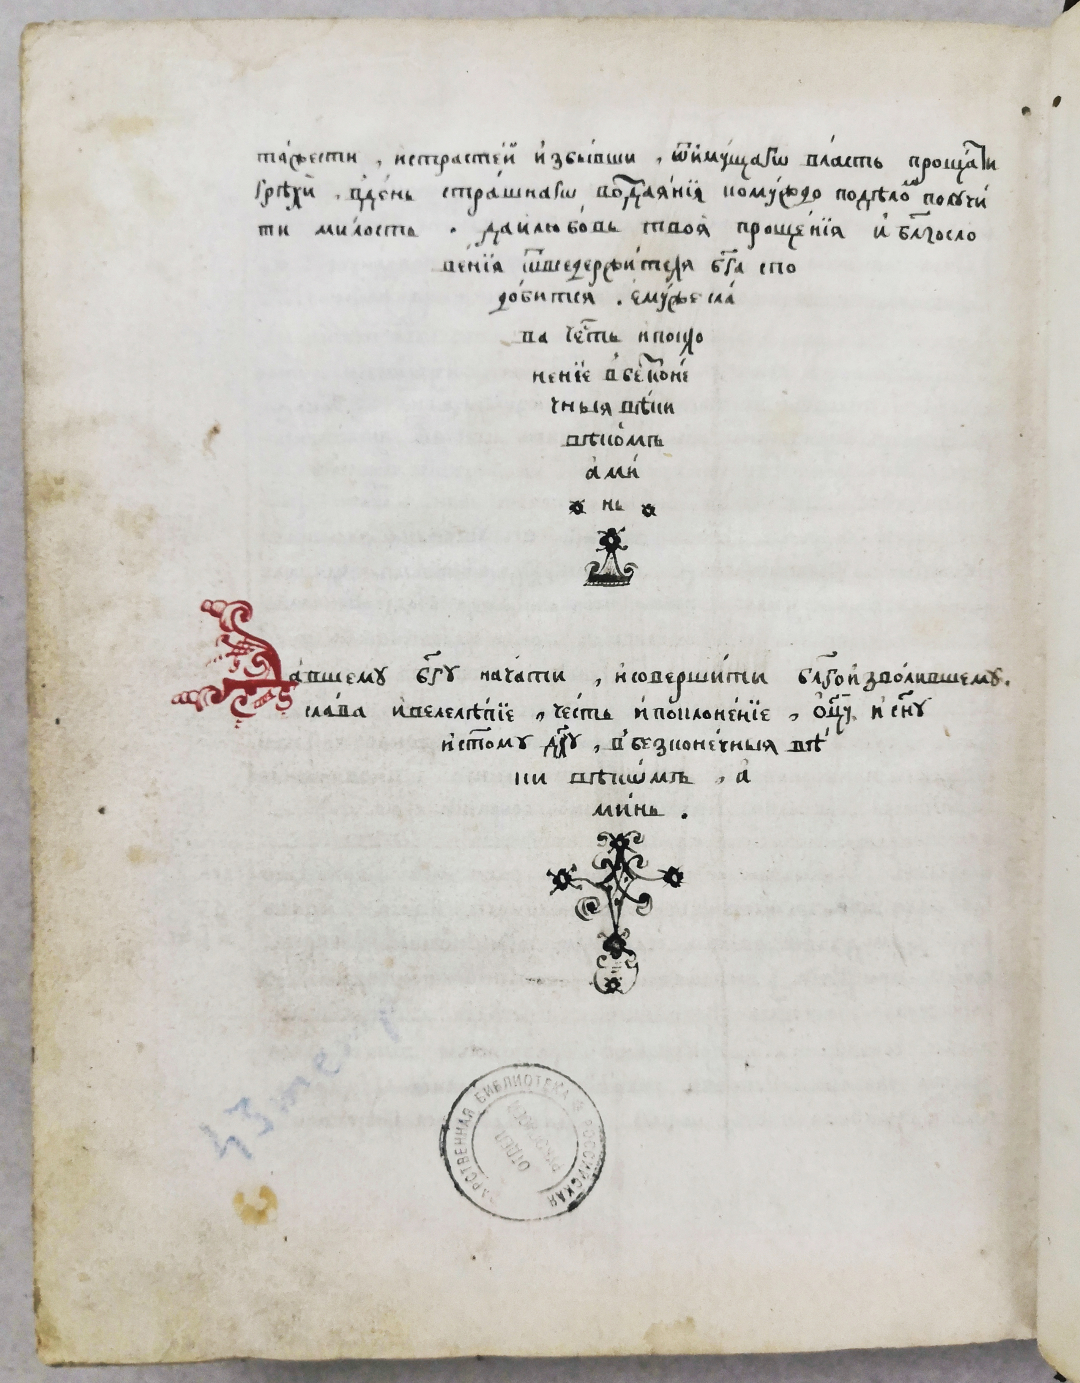 тажести , истрастей избывши , ѿимущаго власть прощати
грѣхи . вдень страшнаго воздаянїя комуждо подѣло получи
ти милость . даилюбовь твоя прощенїя и блгосло
венїя ѿвседержителя бга спо
добится . емуже сла
ва честь ипокло
ненїе вбесконе
чныя вѣки
вѣкомъ
ами
нь
Давшему бгу начати , исовершити блгоизволившему .
слава ивелелѣпїе , честь ипоклоненїе , оцу и сну
истому дху , вбезконечныя вѣ
ки вѣкѡмъ , а
минь .
43
РОССИЙСКАЯ ГОСУДАРСТВЕННАЯ БИБЛИОТЕКА
ОТДЕЛ
РУКОПИСЕЙ